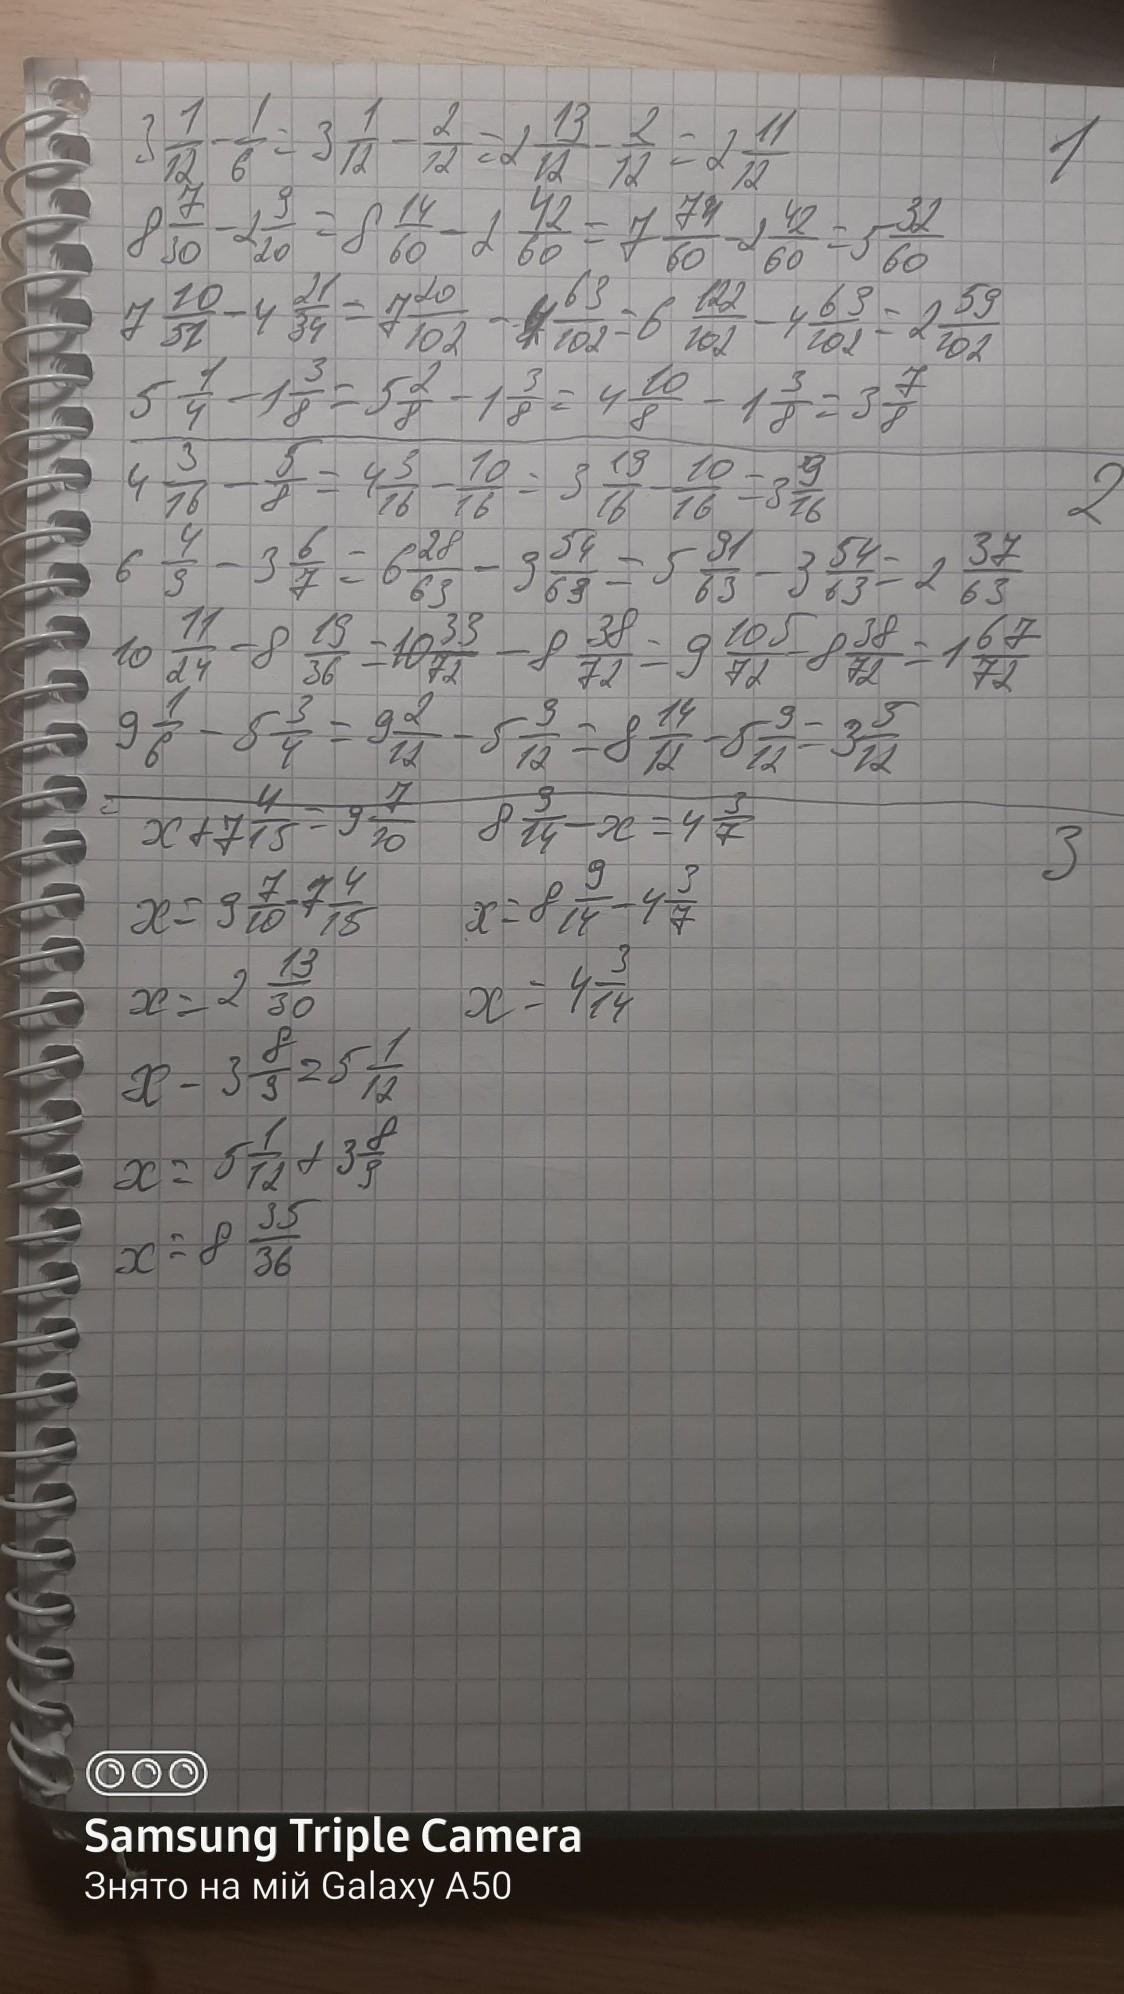 3 1/12 - 1/6 = 3 1/12 - 2/12 = 2 13/12 - 2/12 = 2 11/12
1
8 7/30 - 2 9/20 = 8 14/60 - 2 42/60 = 7 74/60 - 2 42/60 = 5 32/60
7 10/51 - 4 21/34 = 7 20/102 - 4 63/102 = 6 122/102 - 4 63/102 = 2 59/102
5 1/4 - 1 3/8 = 5 2/8 - 1 3/8 = 4 10/8 - 1 3/8 = 3 7/8
4 3/16 - 5/8 = 4 3/16 - 10/16 = 3 19/16 - 10/16 = 3 9/16
2
6 4/9 - 3 6/7 = 6 28/63 - 3 54/63 = 5 91/63 - 3 54/63 = 2 37/63
10 11/24 - 8 19/36 = 10 33/72 - 8 38/72 = 9 105/72 - 8 38/72 = 1 67/72
9 1/6 - 5 3/4 = 9 2/12 - 5 9/12 = 8 14/12 - 5 9/12 = 3 5/12
x + 7 4/15 = 9 7/10   8 9/14 - x = 4 3/7
3
x = 9 7/10 - 7 4/15   x = 8 9/14 - 4 3/7
x = 2 13/30   x = 4 3/14
x - 3 8/9 = 5 1/12
x = 5 1/12 + 3 8/9
x = 8 35/36
Samsung Triple Camera
Знято на мій Galaxy A50